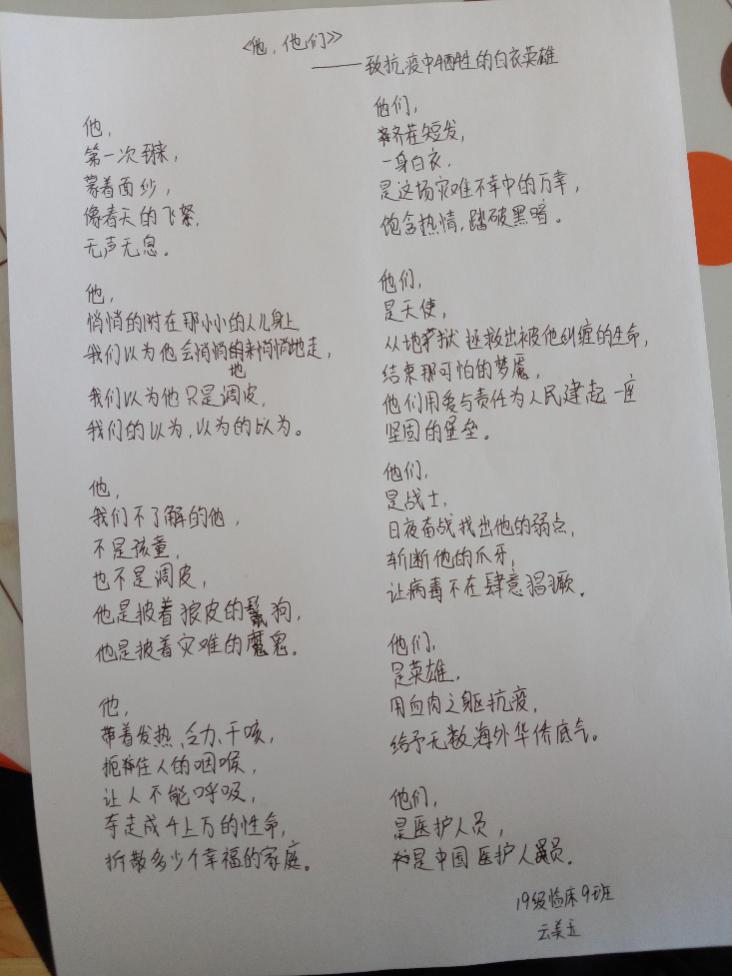 《他，他们》
——致抗疫中牺牲的白衣英雄
他，
第一次到来，
蒙着面纱，
像春天的飞絮，
无声无息。
他，
悄悄的附在那小小的人儿身上
我们以为他会悄悄地来悄悄地走，
我们以为他只是调皮，
我们的以为，以为的以为。
他，
我们不了解的他，
不是孩童，
也不是调皮，
他是披着狼皮的鬣狗，
他是披着灾难的魔鬼。
他，
带着发热、乏力、干咳，
扼住人的咽喉，
让人不能呼吸，
夺走成千上万的性命，
折散多少个幸福的家庭。
他们，
齐茬短发，
一身白衣，
是这场灾难不幸中的万幸，
饱含热情，踏破黑暗。
他们，
是天使，
从地狱拯救出被他纠缠的生命，
结束那可怕的梦魇，
他们用爱与责任为人民建起一座
坚固的堡垒。
他们，
是战士，
日夜奋战找出他的弱点，
斩断他的爪牙，
让病毒不在肆意猖獗。
他们，
是英雄，
用血肉之躯抗疫，
给予无数海外华侨底气。
他们，
是医护人员，
是中国医护人员。
19级临床9班